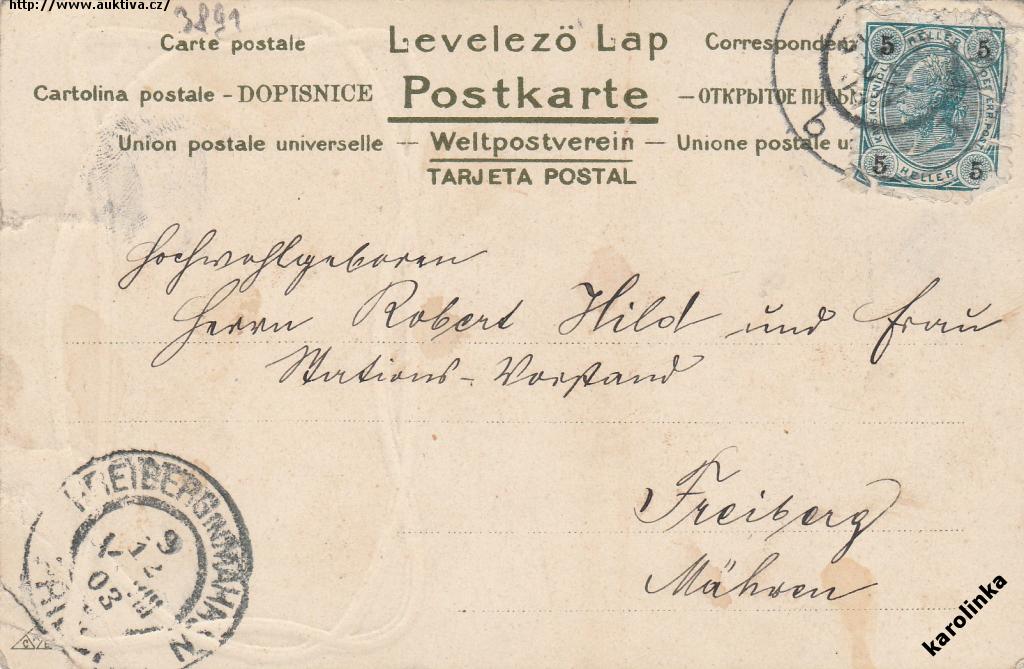 http://www.auktiva.cz/
3891
Carte postale Levelező Lap Corresponden
Cartolina postale - DOPISNICE Postkarte — ОТКРЫТОЕ ПИСЬМ
Union postale universelle -- Weltpostverein — Unione postale u
TARJETA POSTAL
5 HELLER 5
5 HELLER 5
b
Hochwohlgeboren
Herrn Robert Hild und Frau
Stations-Vorstand
Freiberg
Mähren
FREIBERG IN MÄHREN
9
03
karolinka